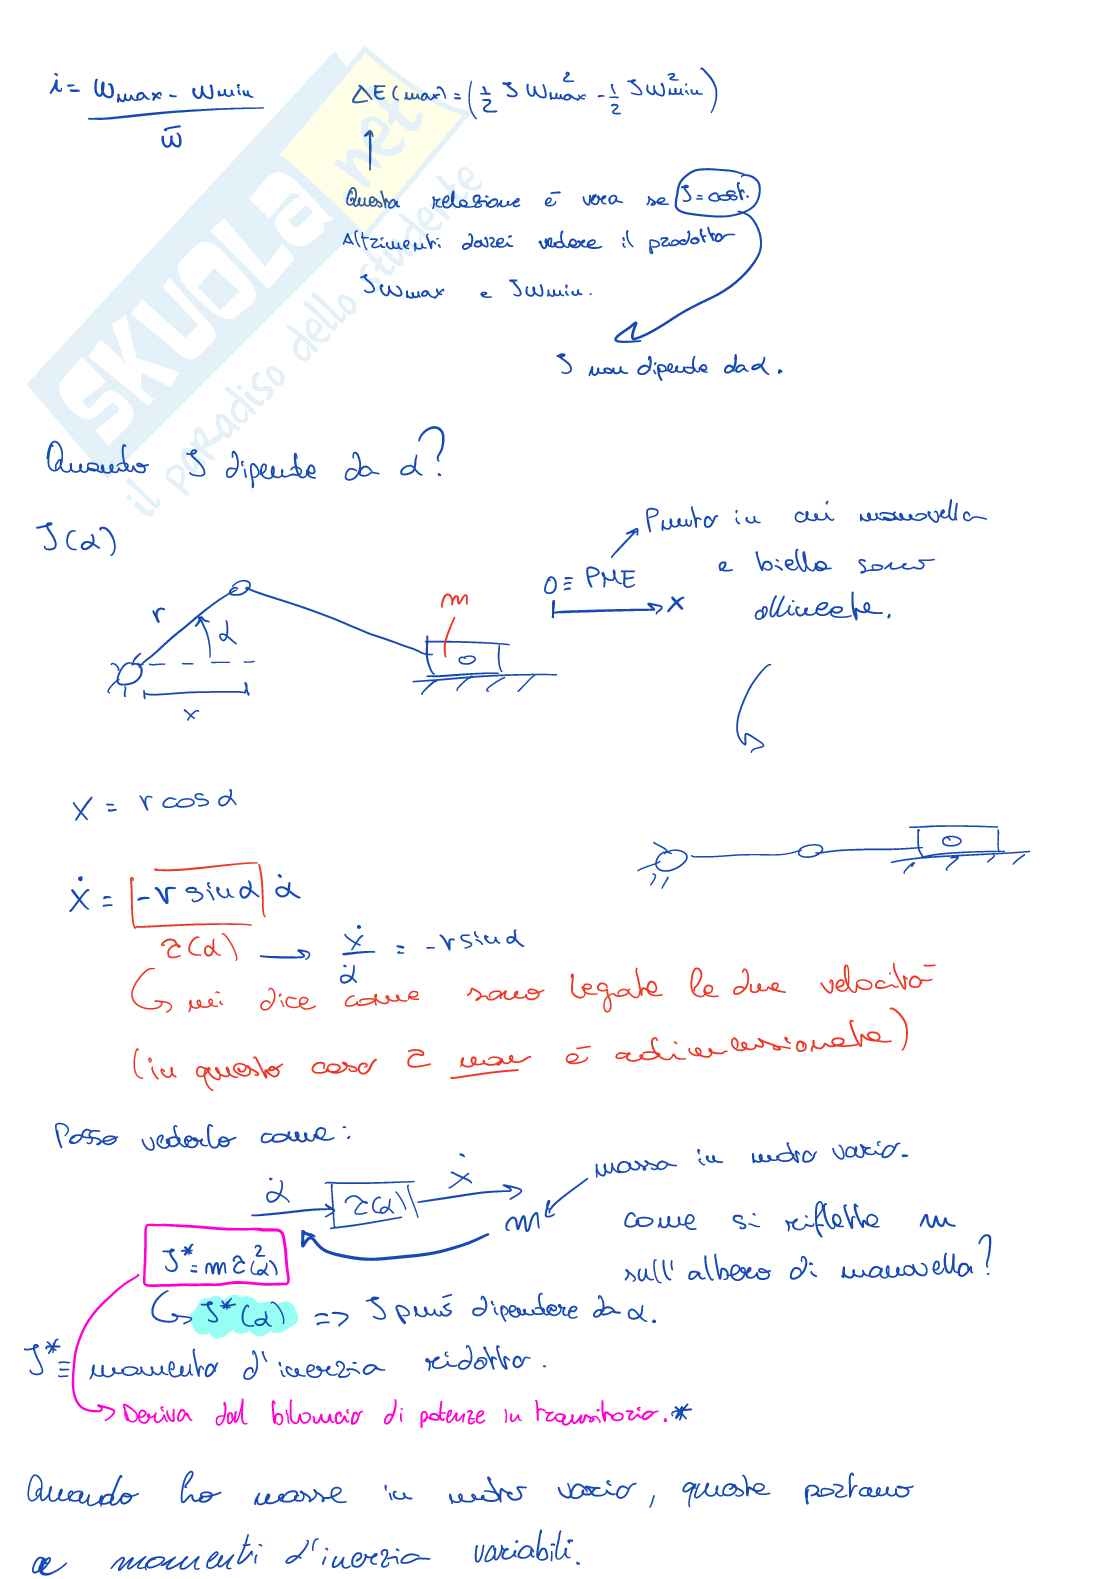 i = ωmax - ωmin / ω̄
ΔE(max) = (1/2 J ω²max - 1/2 J ω²min)
Questa relazione è vera se J = cost.
Altrimenti dovrei vedere il prodotto
Jωmax e Jωmin.
J non dipende da α.
SKUOLA.net
il paradiso dello studente
Quando J dipende da α?
J(α)
Punto in cui manovella
e biella sono
allineate.
O ≡ PME
x
r
α
m
x
x = r cos α
ẋ = -r sin α α̇
τ(α) → ẋ/α̇ = -r sin α
mi dice come sono legate le due velocità
(in questo caso τ non è adimensionata)
Posso vederlo come:
α̇ τ(α) ẋ
m
massa in moto vario.
come si riflette m
sull'albero di manovella?
J* = m τ²(α)
J*(α) => J può dipendere da α.
J* ≡ momento d'inerzia ridotto.
Deriva dal bilancio di potenze in transitorio.*
Quando ho masse in moto vario, queste portano
a momenti d'inerzia variabili.